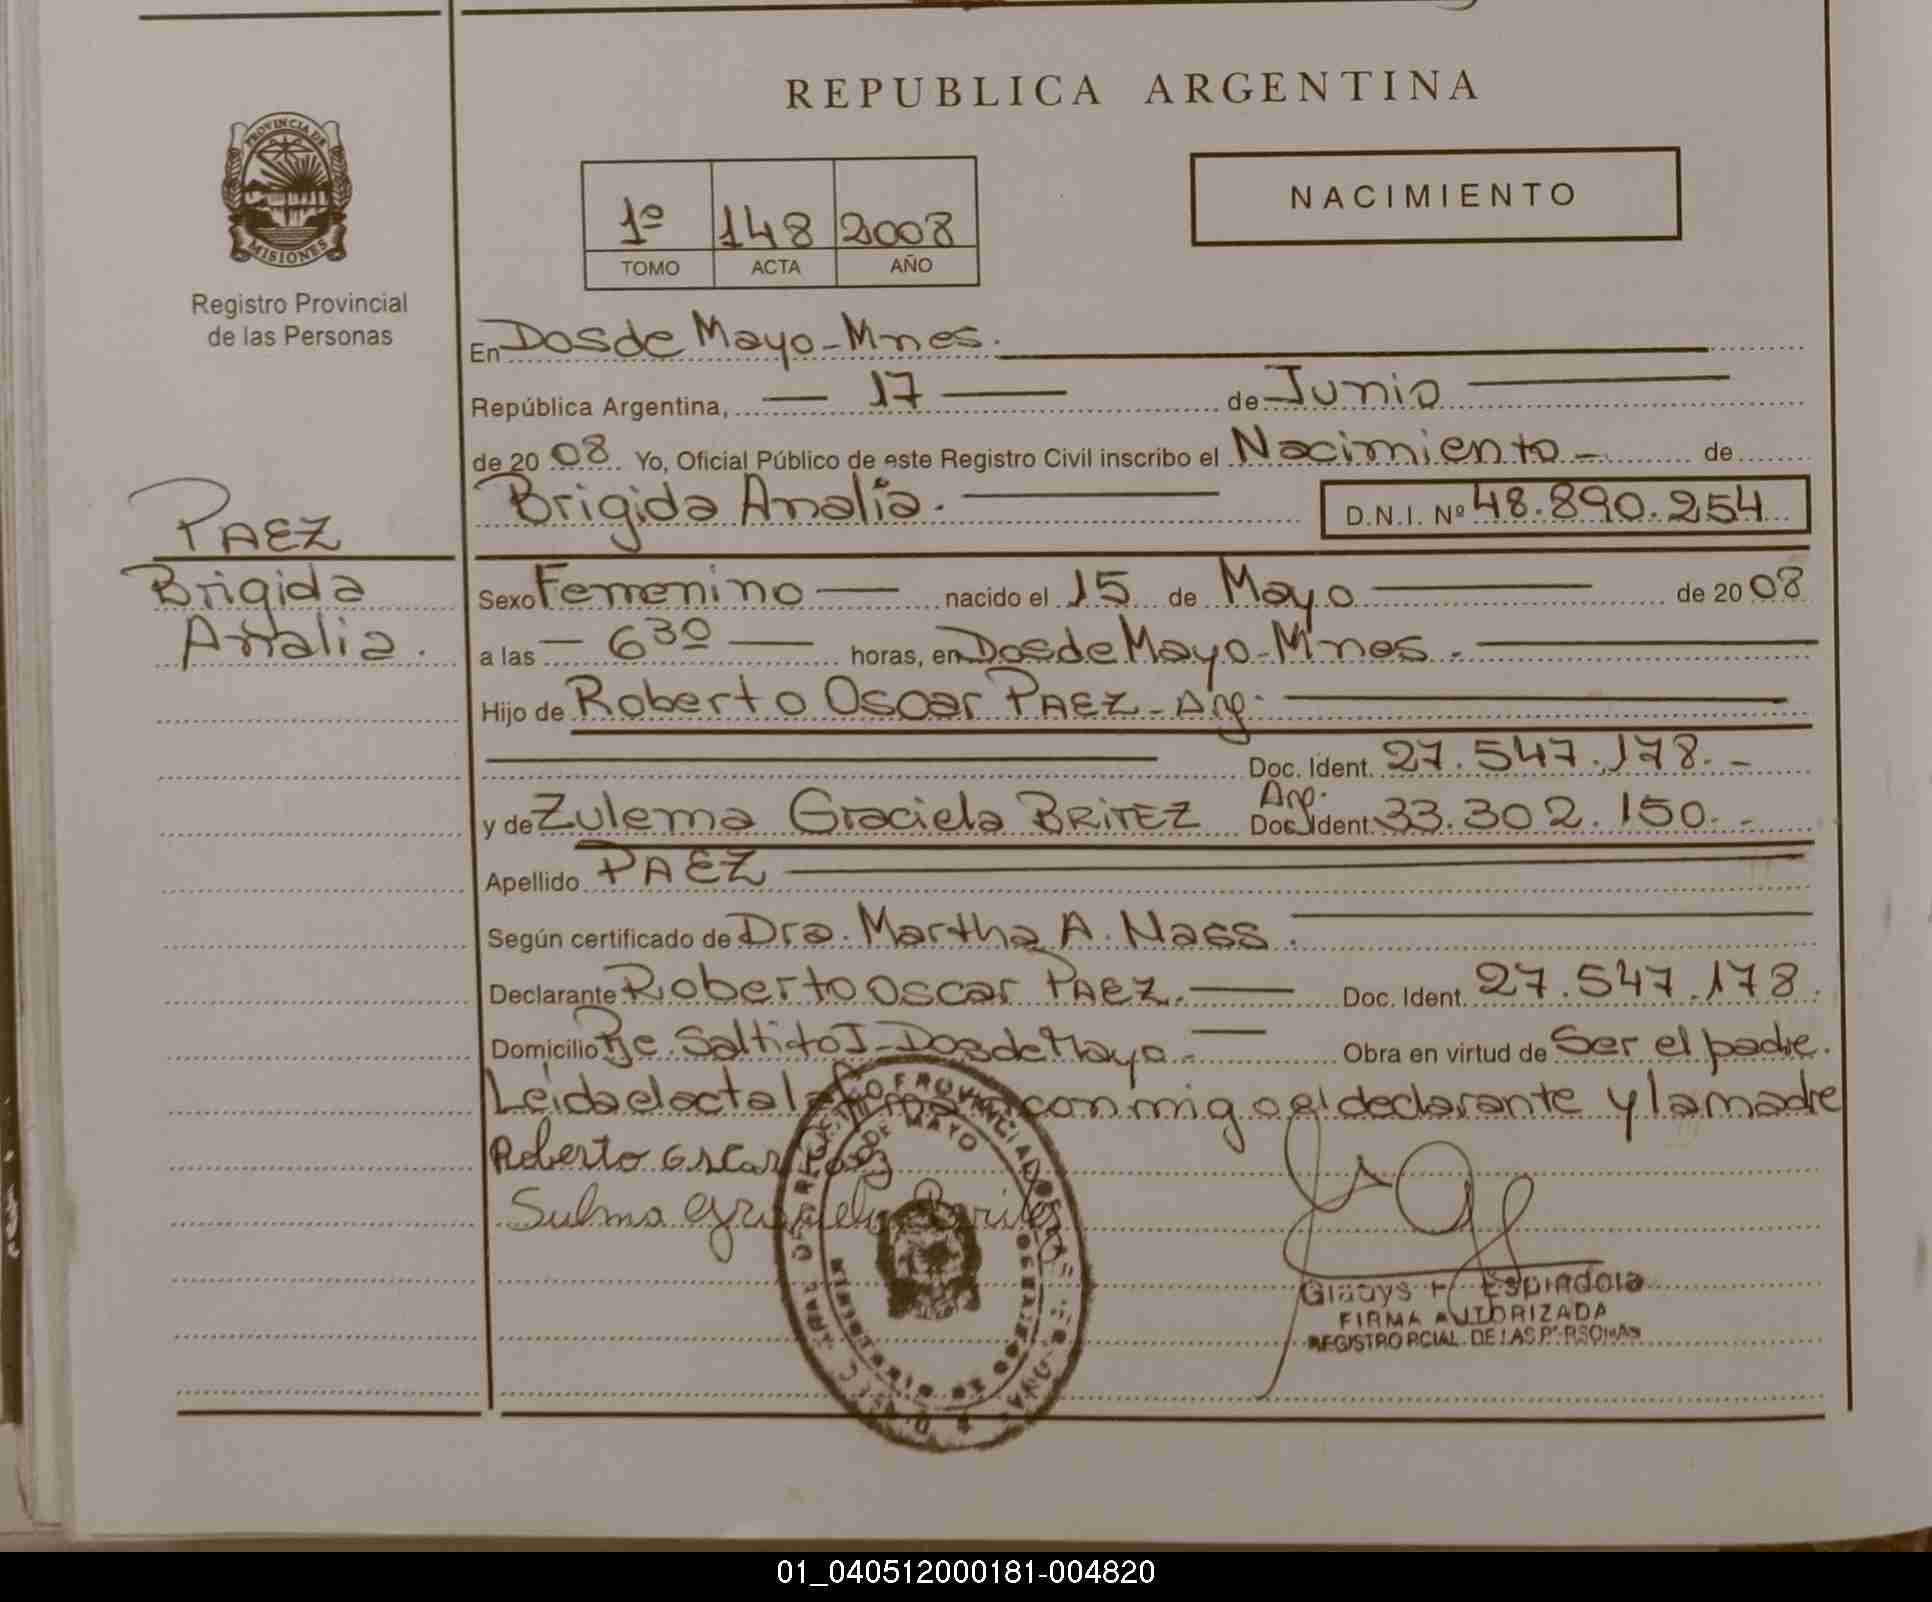 REPUBLICA ARGENTINA
PROVINCIA DE
MISIONES
Registro Provincial
de las Personas
NACIMIENTO
1º 148 2008
TOMO ACTA AÑO
En Dos de Mayo - Mnes.
República Argentina, — 17 — de Junio
de 20 08 Yo, Oficial Público de este Registro Civil inscribo el Nacimiento - de
Brigida Analia. D.N.I. Nº 48.890.254
PAEZ
Brigida
Analia.
Sexo Femenino — nacido el 15 de Mayo — de 20 08
a las — 6 30 — horas, en Dos de Mayo - Mnes. -
Hijo de Roberto Oscar PAEZ - Arg.
Doc. Ident. 27.547.178. -
Arg.
y de Zulema Graciela BRITEZ Doc. Ident. 33.302.150. -
Apellido PAEZ
Según certificado de Dra. Martha A. Nass.
Declarante Roberto Oscar PAEZ. — Doc. Ident. 27.547.178.
Domicilio Pje Saltito I - Dos de Mayo - Obra en virtud de Ser el padre.
Leida el acta la conmigo el declarante y la madre
Roberto Oscar Paez
Sulma
DE MAYO
Gladys Espindola
FIRMA AUTORIZADA
REGISTRO PCIAL. DE LAS PERSONAS
01_040512000181-004820